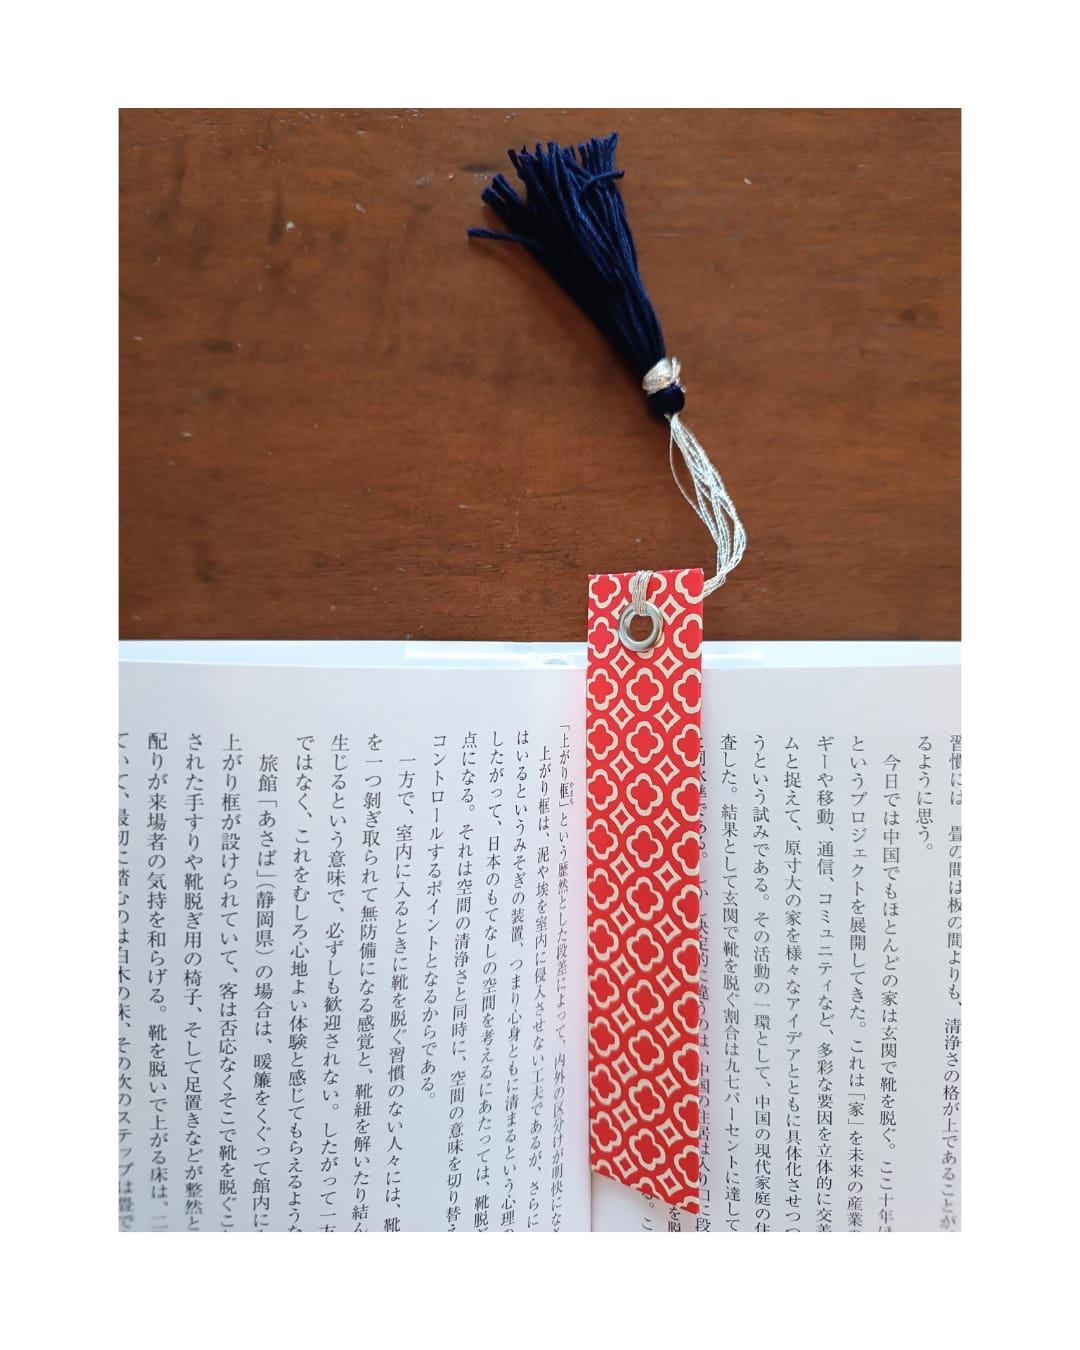 習慣には、畳の間は板の間よりも、清浄さの格が上であることが
るように思う。
今日では中国でもほとんどの家は玄関で靴を脱ぐ。ここ十年ほ
というプロジェクトを展開してきた。これは「家」を未来の産業の
ギーや移動、通信、コミュニティなど、多彩な要因を立体的に交差
ムと捉えて、原寸大の家を様々なアイデアとともに具体化させつつ
うという試みである。その活動の一環として、中国の現代家庭の住
査した。結果として玄関で靴を脱ぐ割合は九七パーセントに達して
水準である。しかし決定的に違うのは、中国の住居は入り口に段
を脱
る。こ
「上がり框」という歴然とした段差によって、内外の区分けが明快にな
かまち
上がり框は、泥や埃を室内に侵入させない工夫であるが、さらに
はいるというみそぎの装置、つまり心身ともに清まるという心理の
したがって、日本のもてなしの空間を考えるにあたっては、靴脱ぎ
点になる。それは空間の清浄さと同時に、空間の意味を切り替え
コントロールするポイントとなるからである。
一方で、室内に入るときに靴を脱ぐ習慣のない人々には、靴
を一つ剝ぎ取られて無防備になる感覚と、靴紐を解いたり結ん
生じるという意味で、必ずしも歓迎されない。したがって一方
ではなく、これをむしろ心地よい体験と感じてもらえるような
旅館「あさば」(静岡県)の場合は、暖簾をくぐって館内に
上がり框が設けられていて、客は否応なくそこで靴を脱ぐこ
された手すりや靴脱ぎ用の椅子、そして足置きなどが整然と
配りが来場者の気持を和らげる。靴を脱いで上がる床は、二
ていて、最初に踏むのは白木の床、その次のステップは畳で